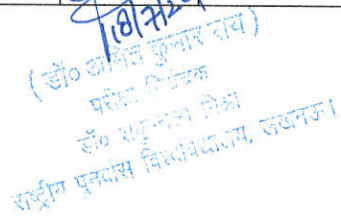 18/7/2
(डॉ० अमित कुमार राय)
परीक्षा नियंत्रक
डॉ० शकुन्तला मिश्रा
राष्ट्रीय पुनर्वास विश्वविद्यालय, लखनऊ।